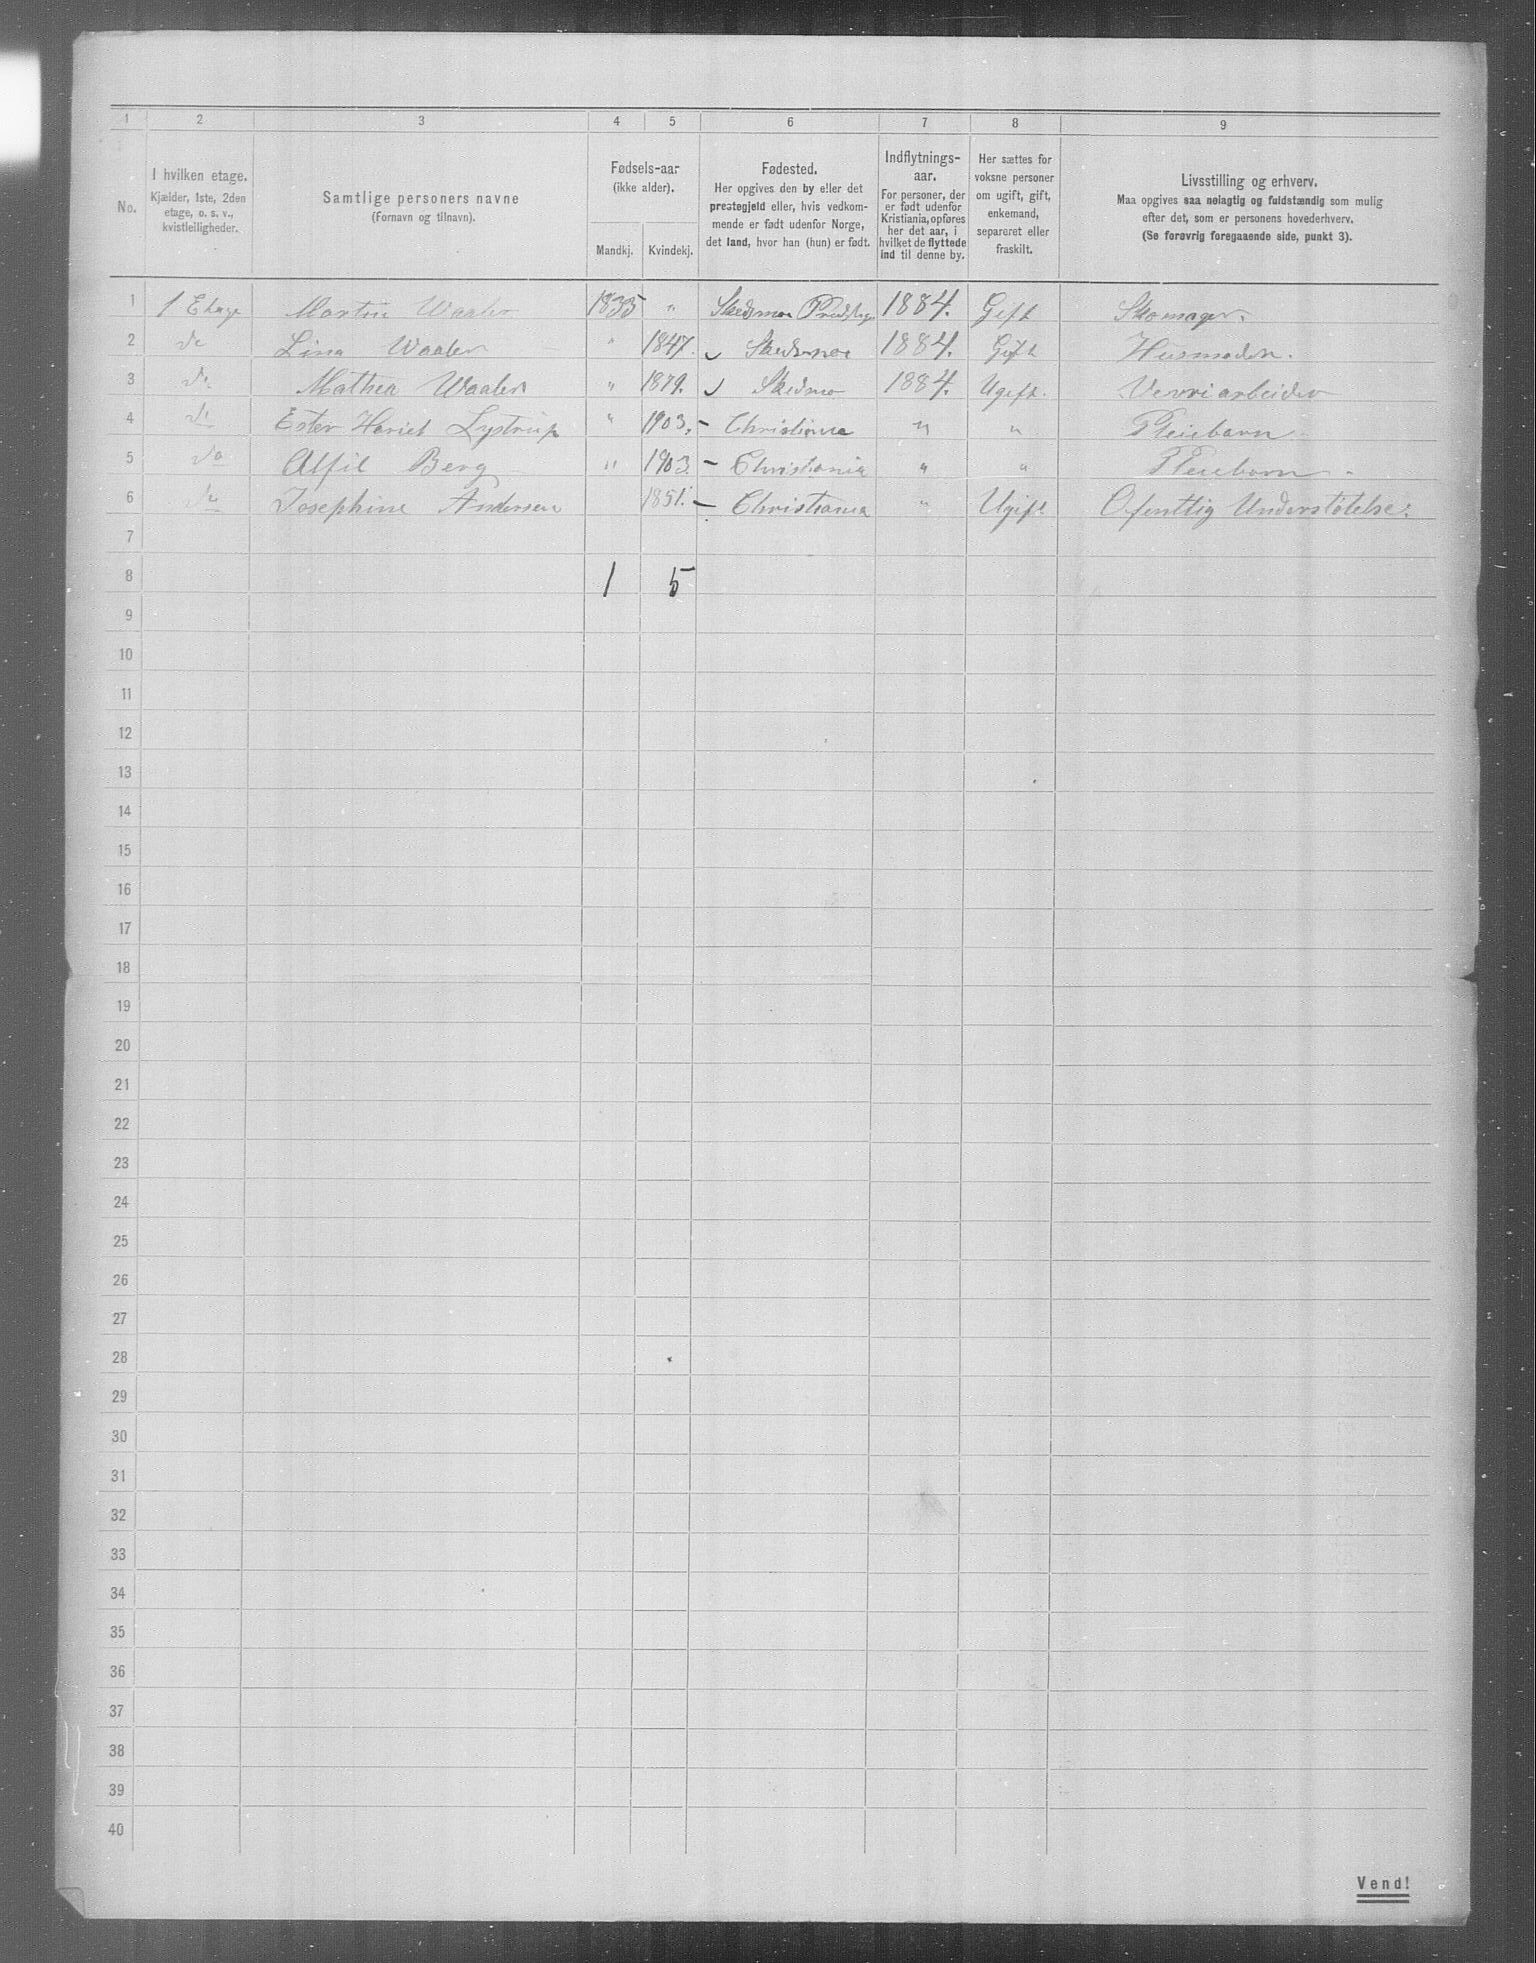 1 2 3 4 5 6 7 8 9
No.
I hvilken etage.
Kjælder, 1ste, 2den
etage, o. s. v.,
kvistleiligheder.
Samtlige personers navne
(Fornavn og tilnavn).
Fødsels-aar
(ikke alder).
Mandkj. Kvindekj.
Fødested.
Her opgives den by eller det
prestegjeld eller, hvis vedkom-
mende er født udenfor Norge,
det land, hvor han (hun) er født.
Indflytnings-
aar.
For personer, der
er født udenfor
Kristiania, opføres
her det aar, i
hvilket de flyttede
ind til denne by.
Her sættes for
voksne personer
om ugift, gift,
enkemand,
separeret eller
fraskilt.
Livsstilling og erhverv.
Maa opgives saa nøiagtig og fuldstændig som mulig
efter det, som er personens hovederhverv.
(Se forøvrig foregaaende side, punkt 3).
1 1 Etage Martin Waaler 1835 " Skedsmoe 1884. Gift Skomager.
2 do Lina Waaler " 1847. Skedsmoe 1884. Gift Husmoder.
3 do Mathea Waaler " 1879. Skedsmo 1884. Ugift. Verviarbeider
4 do Ester Hariet Lystrup " 1903. - Christiania " " Pleiebarn
5 do Alfil Berg " 1903. - Christiania " " Pleiebarn
6 do Josephine Andersen 1851. - Christiania " Ugift Ofenttig Understøtelse.
7
8 1 5
9
10
11
12
13
14
15
16
17
18
19
20
21
22
23
24
25
26
27
28
29
30
31
32
33
34
35
36
37
38
39
40
Vend!